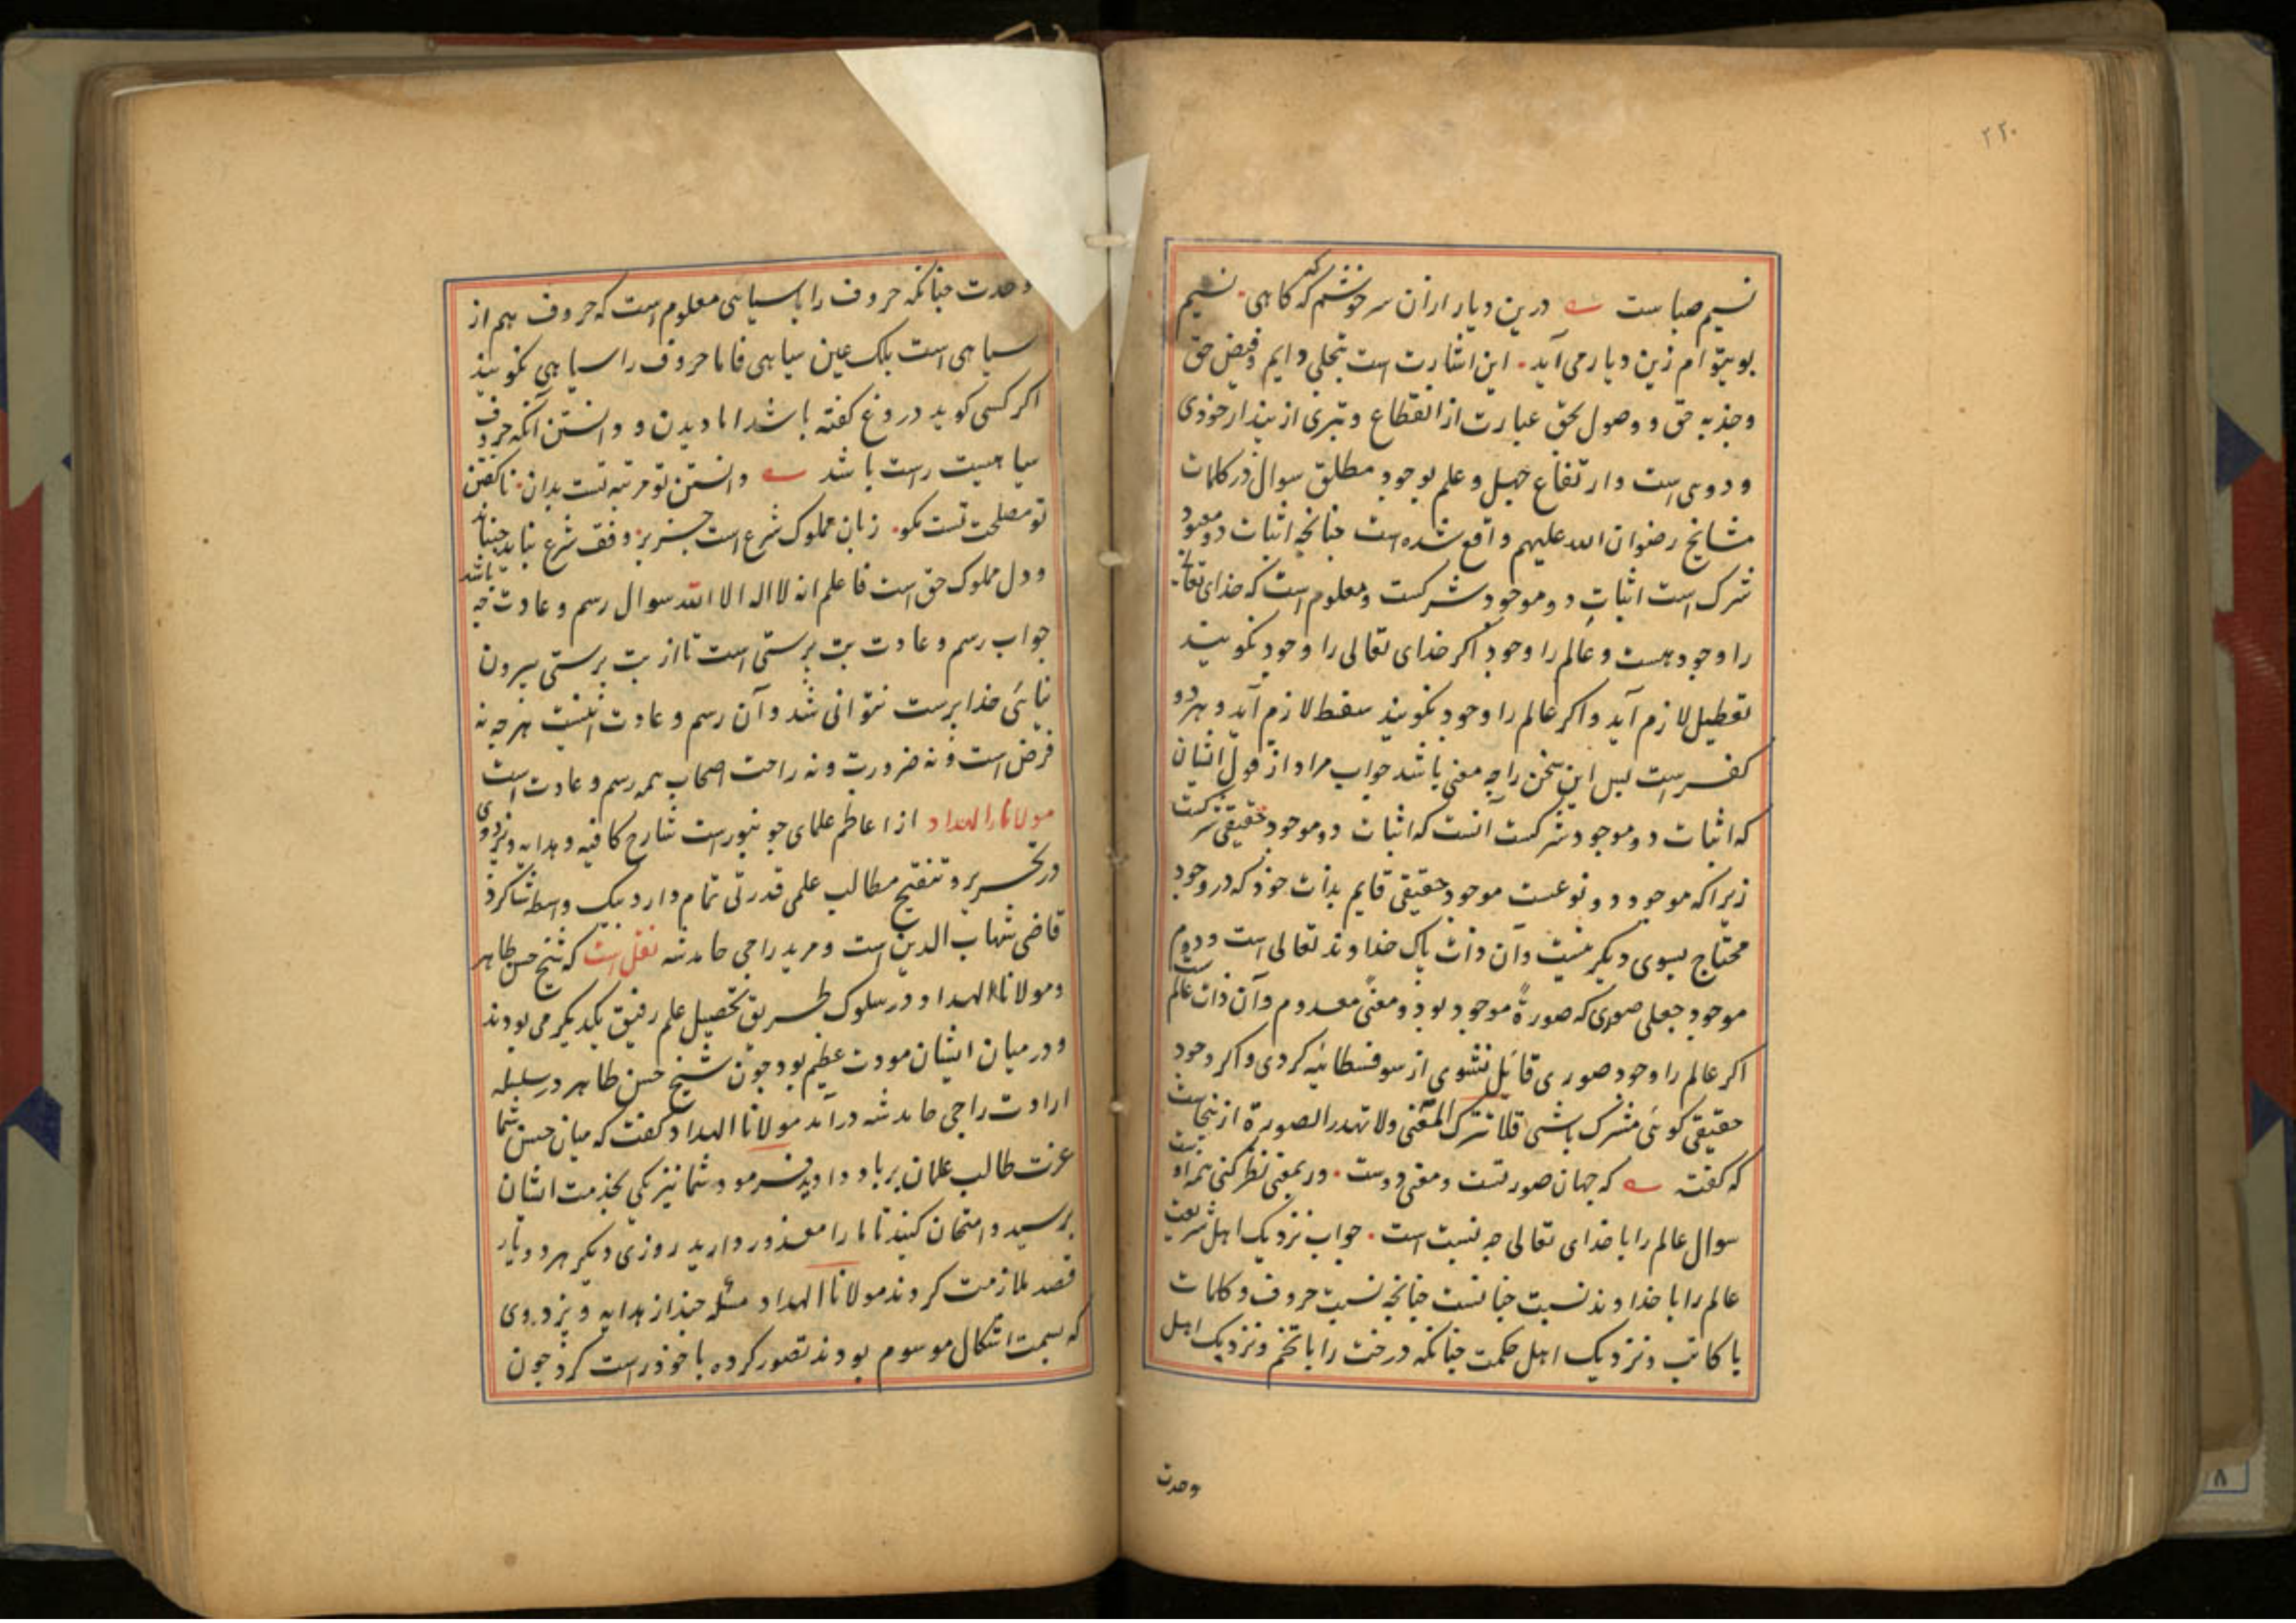 ۲۲۰
نسیم صباست درین دیار ازان سرخوشم که کاهی نسیم
بوییتوام زین دیار می آید این اشارت است بتجلی دایم و فیض حق
و جذبه حق و وصول بحق عبارت از انقطاع و تبری از پندار خودی
و دوی است و ارتفاع جهل و علم بوجود مطلق سوال در کلمات
مشایخ رضوان الله علیهم واقع شده است چنانچه اثبات دو معبود
شرک است اثبات دو موجود شرکست و معلوم است که خدای تعالی
را وجود هست و عالم را وجود اکر خدای تعالی را وجود نکویند
تعطیل لازم آید و اکر عالم را وجود نکویند سفسط لازم آید و هر دو
کفرست پس این سخن را چه معنی باشد جواب مراد از قول ایشان
که اثبات دو موجود شرکست آنست که اثبات دو موجود حقیقی شرکست
زیراکه موجود دو نوعست موجود حقیقی قایم بذات خود که در وجود
محتاج بسوی دیکر نیست و آن ذات پاک خداوند تعالی است و دوم
موجود جعلی صوری که صورة موجود بود و معنی معدوم و آن ذات عالم است
اکر عالم را وجود صوری قائل نشوی از سوفسطائیه کردی و اکر وجود
حقیقی کوئی مشرک باشی فلا تترک المعنی ولا تهدر الصورة ازینجاست
که کفته که جهان صورتست و معنی دوست ور بمعنی نظر کنی همه اوست
سوال عالم را با خدای تعالی چه نسبت است جواب نزدیک اهل شریعت
عالم را با خداوند نسبت چنانست چنانچه نسبت حروف و کلمات
با کاتب و نزدیک اهل حکمت چنانکه درخت را با تخم و نزدیک اهل
وحدت
وحدت چنانکه حروف را با سیاهی معلوم است که حروف هم از
سیاهی است بلک عین سیاهی فاما حروف را سیاهی نکویند
اکر کسی کوید دروغ کفته باشد اما دیدن و دانستن آنکه حروف
سیاهیست راست باشد دانستن تو مرتبه تست بدان ناکفتن
تو مصلحت تست مکو زبان مملوک شرع است جز بر وفق شرع نباید جنباند
و دل مملوک حق است فاعلم انه لا اله الا الله سوال رسم و عادت چه باشد
جواب رسم و عادت بت پرستی است تا از بت پرستی بیرون
نیائی خدا پرست نتوانی شد و آن رسم و عادت اینست هر چه نه
فرض است و نه ضرورت و نه راحت اصحاب همه رسم و عادت است
مولانا الهداد از اعاظم علمای جونپورست شارح کافیه و هدایه و بزدوی
در تحریر و تنقیح مطالب علمی قدرتی تمام دارد بیک واسطه شاکرد
قاضی شهاب الدین است و مرید راجی حامد شه نقل است که شیخ حسن طاهر
و مولانا الهداد در سلوک طریق تحصیل علم رفیق یکدیکر می بودند
و در میان ایشان مودت عظیم بود چون شیخ حسن طاهر در سلسله
ارادت راجی حامد شه درآمد مولانا الهداد کفت که میان حسن شما
عزت طالب علمان بر باد دادید فرمود شما نیز یکی بخدمت ایشان
برسید و امتحان کنید تا ما را معذور دارید روزی دیکر هر دو یار
قصد ملازمت کردند مولانا الهداد مسئله چند از هدایه و بزدوی
که بسمت اشکال موسوم بودند تصور کرده با خود راست کرد چون